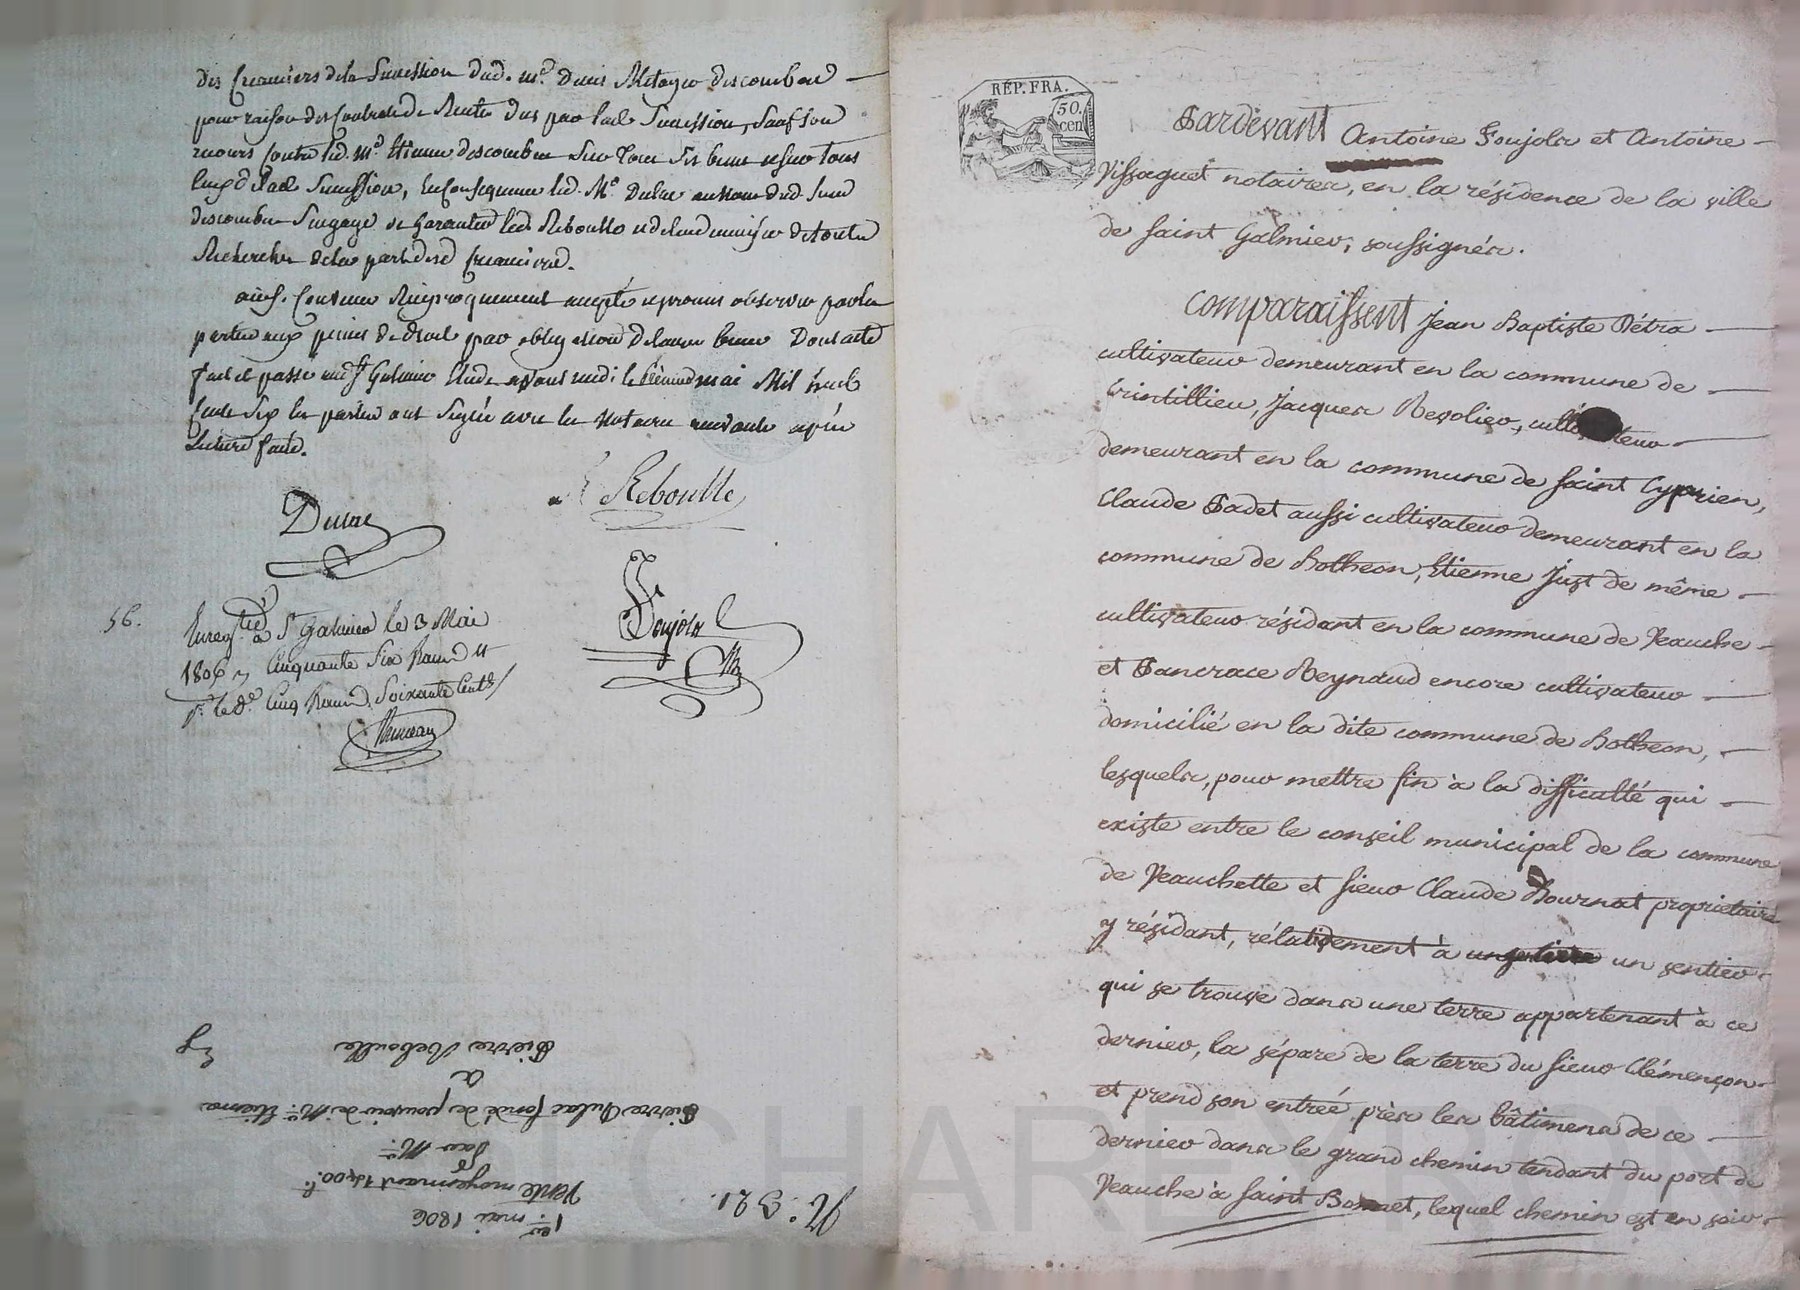 des Creanciers de la Succession dud. Me. Denis Metayer descombes
pour raison des Contrats de Rente dus par lad. Succession, Sauf son
recours Contre led. Me. Etienne descombes Sur tous Ses biens
lad. Succession, En Consequence led. Me. Dulac au nom dud. Sieur
descombes S'engage de Garantir led. Reboulle de toute
Recherche de la part desd. Creanciers.
ainsi Convenu Reciproquement accepté et promis observer par les
parties aux peines de droit par obligation de leurs biens Dont acte
fait et passé aud. St. Galmier Etude avant midi le premier mai Mil huit
Cent Six les parties ont Signé avec les Notaires après
Lecture faite.
Reboulle
Dulac
Foujols
Ne
56.
Enregtré à St. Galmier le 3 Mai
1806 Cinquante Six
Cinq Soixante Cents
N.º 321.
1er. mai 1806
Vente moyennant 1400f.
par Me.
Pierre Dulac fondé de pouvoir de Mr. Etienne
à
Pierre Reboulle
RÉP. FRA.
50.
cen
Pardevant Antoine Foujols et Antoine
Vissaguet notaires, en la résidence de la ville
de Saint Galmier, soussignés.
Comparaissent Jean Baptiste Pétra
cultivateur demeurant en la commune de
Grintillieu, Jacques Revolier, cultivateur
demeurant en la commune de Saint Cyprien,
Claude Padet aussi cultivateur demeurant en la
commune de Botheon, Etienne Just de même
cultivateur résidant en la commune de Veauche
et Pancrace Reynaud encore cultivateur
domicilié en la dite commune de Botheon,
lesquels, pour mettre fin à la difficulté qui
existe entre le conseil municipal de la commune
de Veauchette et Sieur Claude Bournat proprietaire
y résidant, rélativement à un sentier
qui se trouve dans une terre appartenant à ce
dernier, la sépare de la terre du Sieur Clémençon
et prend son entréé près les bâtimens de ce
dernier dans le grand chemin tendant du port de
Veauche à Saint Bonnet, lequel chemin est en soir
CHAREYRON